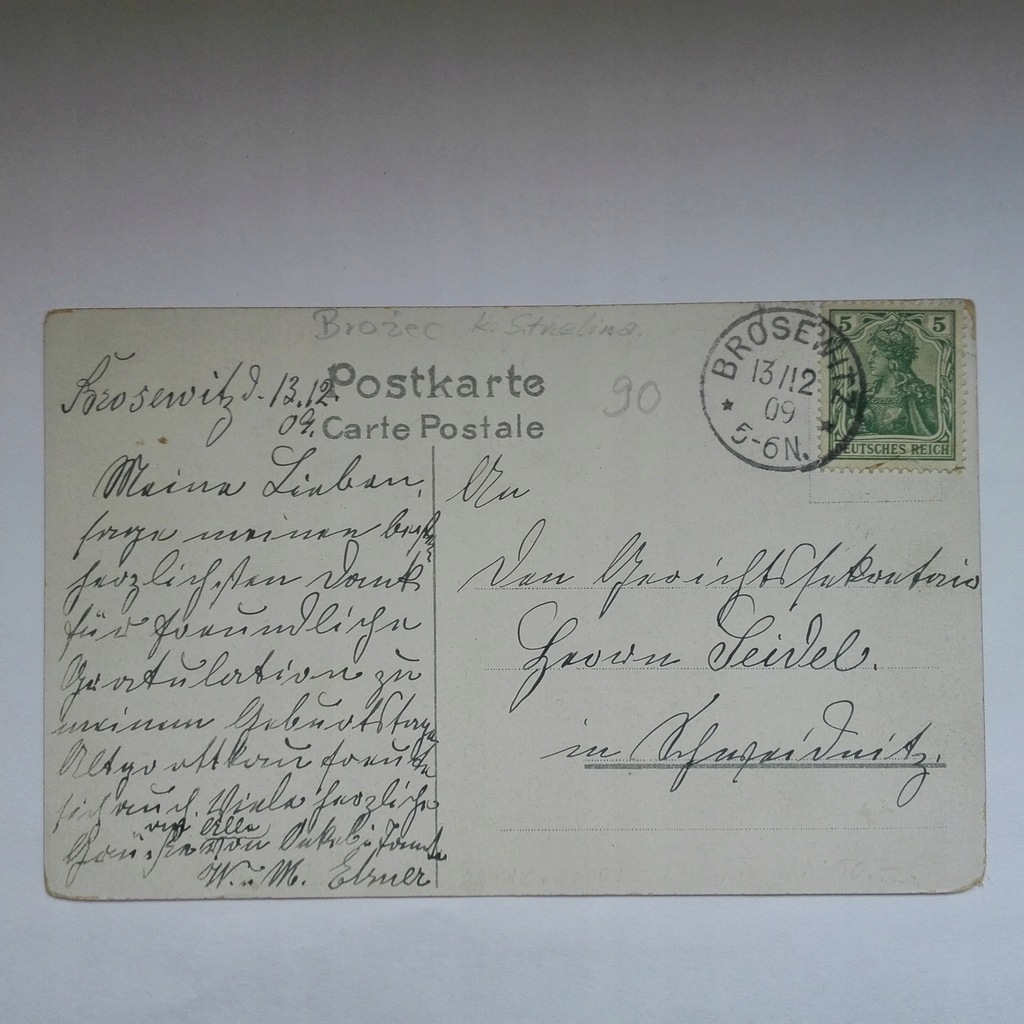 Brożec k. Strzelina.
Brosewitz d. 13.12.
09.
Postkarte
Carte Postale
90
BROSEWITZ
13/12
09
5-6N.
5 5
DEUTSCHES REICH
Meine Lieben,
sage meinen
herzlichsten Dank
für freundliche
Gratulation zu
meinem Geburtstage
freute
sich auch. Viele herzliche
an Alle
Grüße von Onkel u. Tante
W. u. M. Elsner
An
Den Gerichtssekretair
Herrn Seidel.
in Schweidnitz.